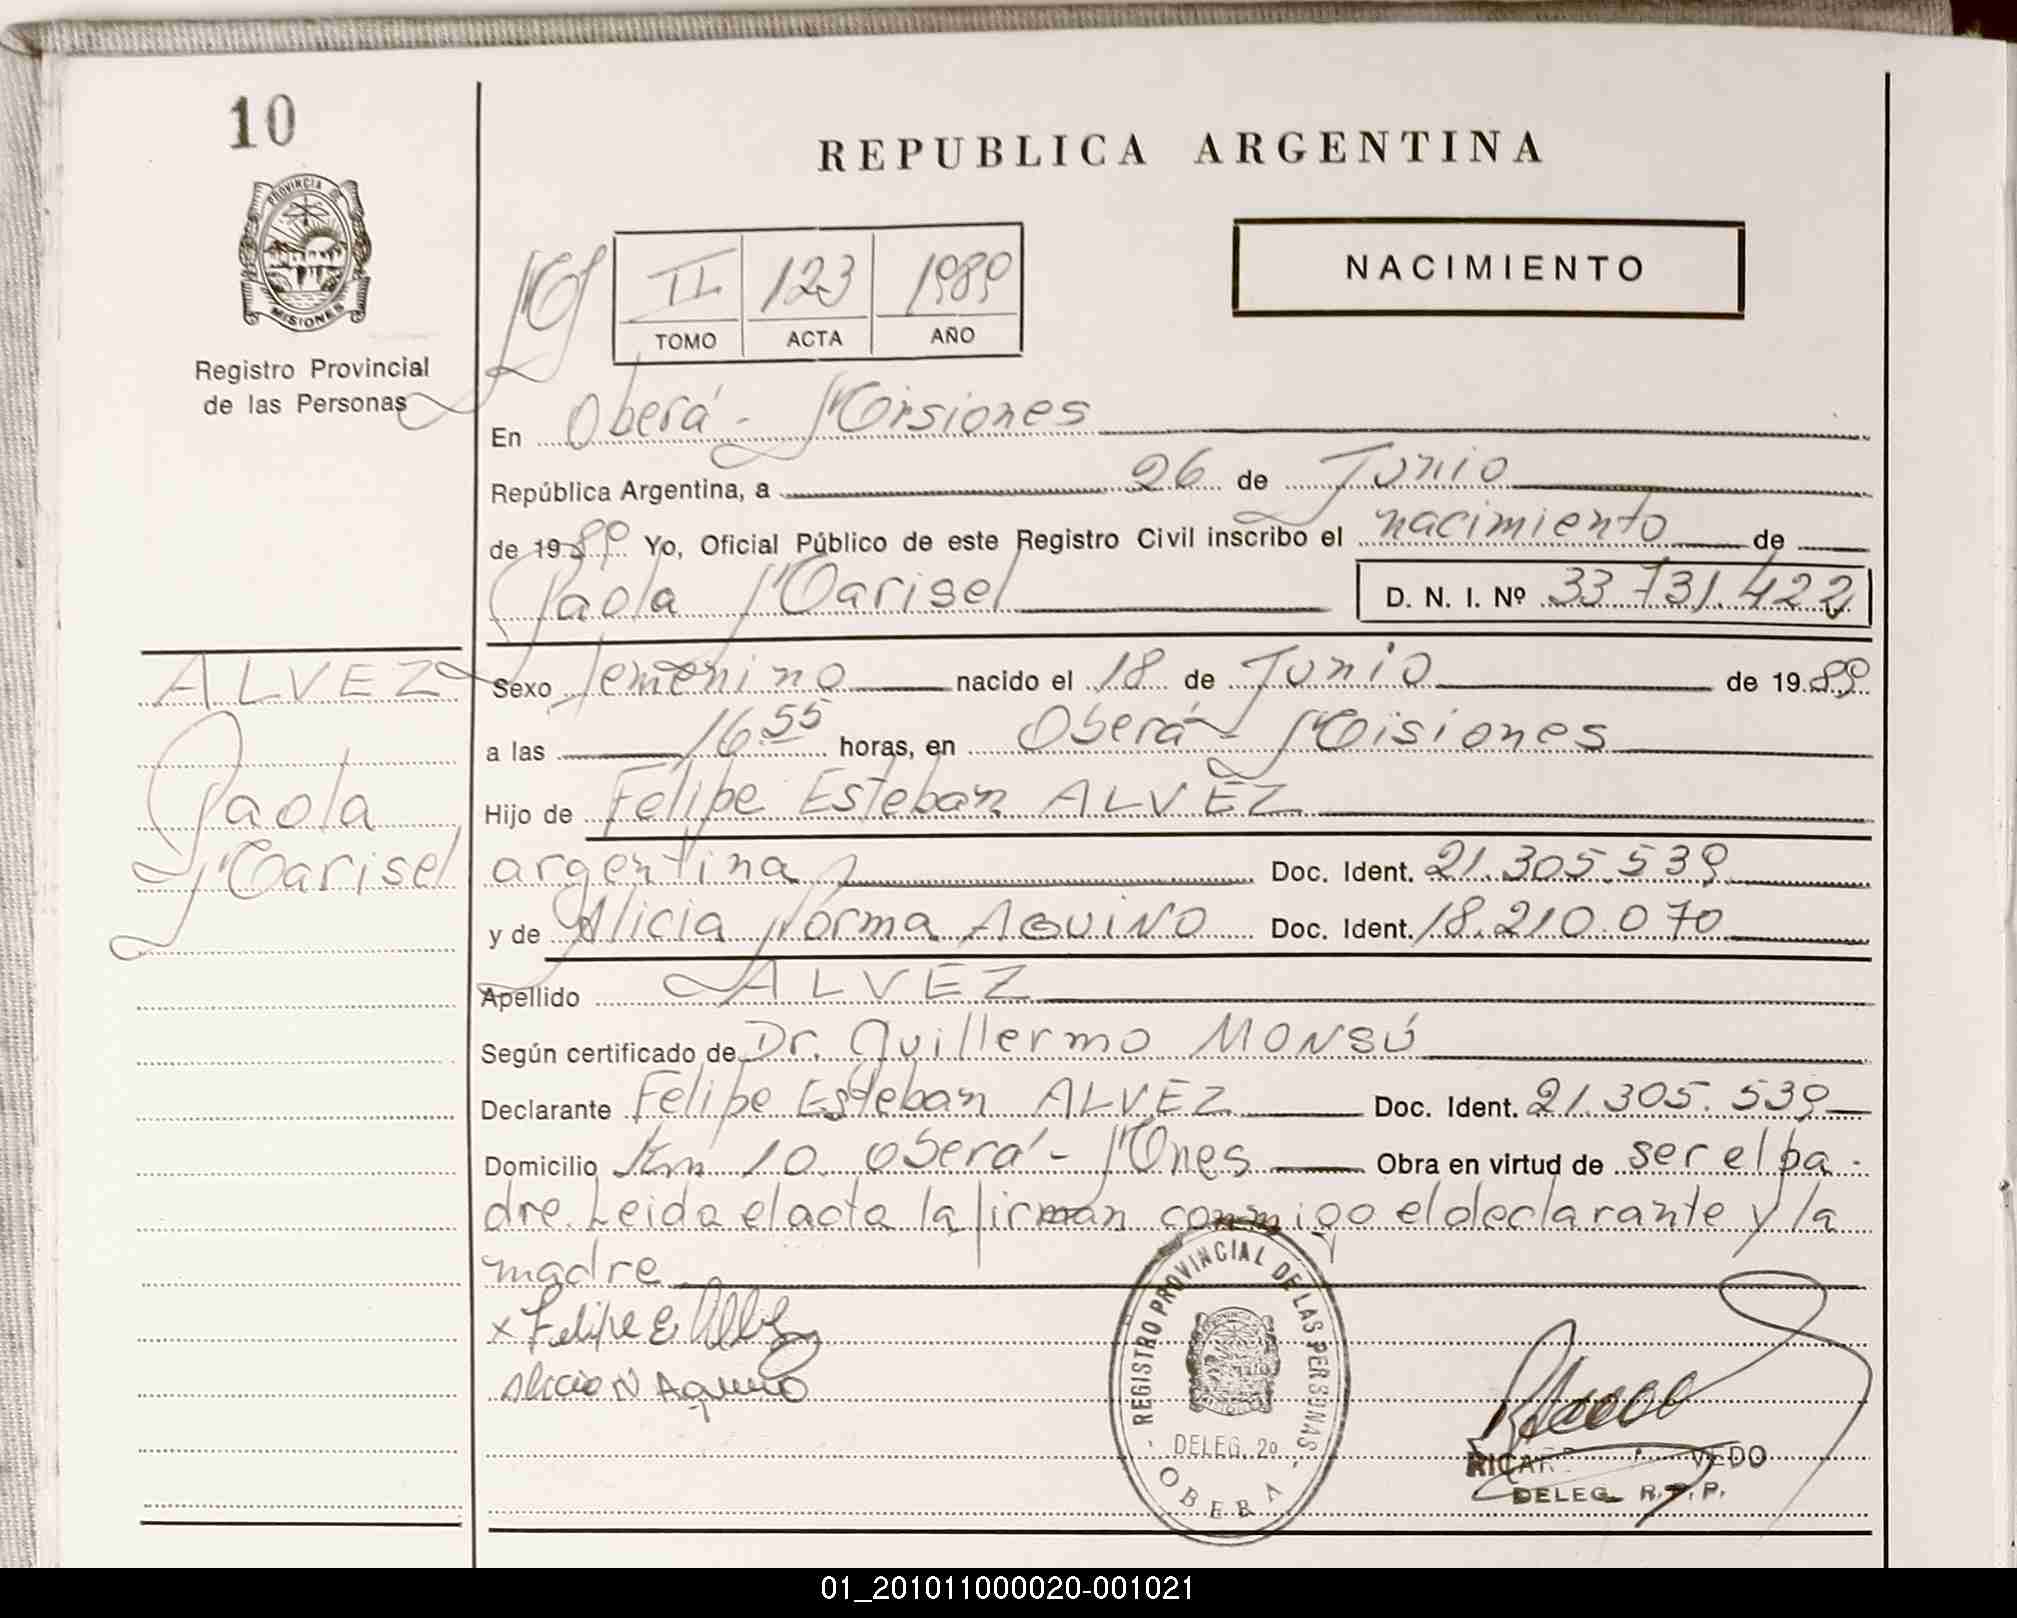 10
PROVINCIA DE
MISIONES
Registro Provincial
de las Personas
REPUBLICA ARGENTINA
NACIMIENTO
II 123 1989
TOMO ACTA AÑO
En Oberá - Misiones
República Argentina, a 26 de Junio
de 1989 Yo, Oficial Público de este Registro Civil inscribo el nacimiento de
Paola Marisel D. N. I. Nº 33.731.422
ALVEZ
Paola
Marisel
Sexo femenino nacido el 18 de Junio de 1989
a las 16.55 horas, en Oberá - Misiones
Hijo de Felipe Esteban ALVEZ
argentina Doc. Ident. 21.305.539
y de Alicia Norma AQUINO Doc. Ident. 18.210.070
Apellido ALVEZ
Según certificado de Dr. Guillermo MONSÚ
Declarante Felipe Esteban ALVEZ Doc. Ident. 21.305.539
Domicilio Km 10 Oberá - Mnes Obra en virtud de ser el pa-
dre. Leida el acta la firman conmigo el declarante y la
madre
x Felipe E. Alvez
Alicia N Aquino
REGISTRO PROVINCIAL DE LAS PERSONAS
DELEG. 2º
OBERA
DELEG. R.P.P.
01_201011000020-001021